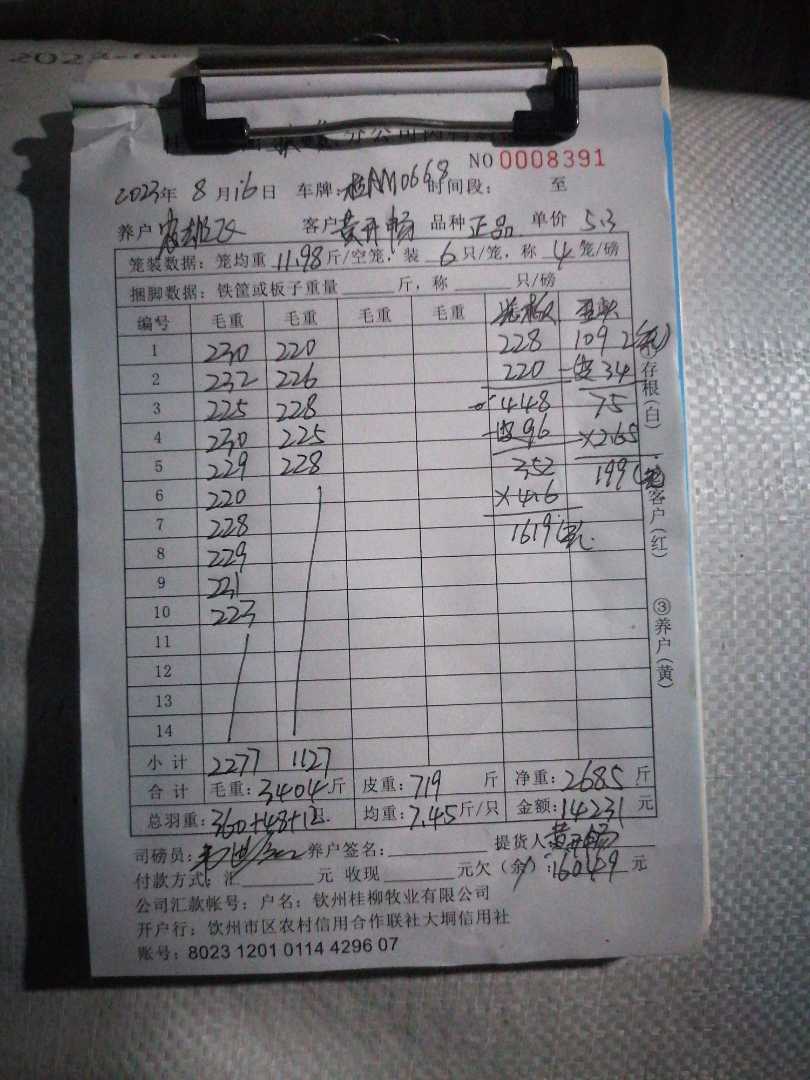 分公司
NO 0008391
2023年 8月16日 车牌:桂AM0668 时间段: 至
养户 客户黄开畅 品种 正品 单价 5.3
笼装数据: 笼均重 11.98 斤/空笼, 装 6 只/笼, 称 4 笼/磅
捆脚数据: 铁筐或板子重量 斤, 称 只/磅
编号 毛重 毛重 毛重 毛重
1 230 220 228 109
2 232 226 220 34
3 225 228 448 75
4 230 225 96 ×2.65
5 229 228 352 199
6 220 ×4.6
7 228 1619
8 229
9 221
10 223
11
12
13
14
小计 2277 1127
合计 毛重:3404斤 皮重:719 斤 净重:2685 斤
总羽重:360+48+12 均重:7.45斤/只 金额:14231 元
司磅员: 养户签名: 提货人 黄开畅
付款方式:汇 元 收现 元欠(余):16049 元
公司汇款帐号: 户名: 钦州桂柳牧业有限公司
开户行: 钦州市区农村信用合作联社大垌信用社
账号: 8023 1201 0114 4296 07
①存根(白)
客户(红)
③养户(黄)